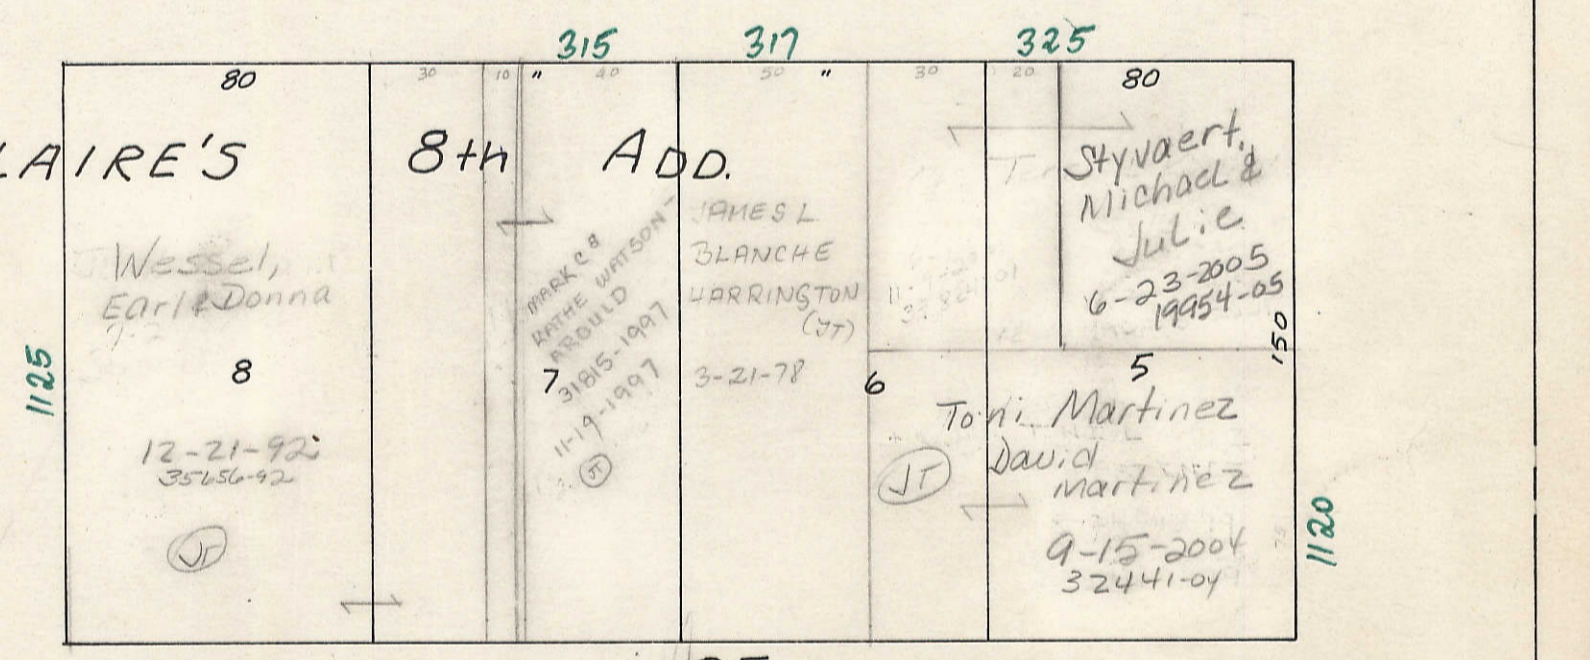 315 317 325
80 30 10 " 40 50 " 30 20 80
LAIRE'S 8th ADD.
Wessel,
Earl & Donna
8
12-21-92
35656-92
JT
1125
MARK C &
KATHE WATSON-
AROULD
31815-1997
11-19-1997
JT
7
JAMES L
BLANCHE
HARRINGTON
(JT)
3-21-78
6
Styvaert,
Michael &
Julie
6-23-2005
19954-05
150
5
Toni Martinez
David
Martinez
JT
9-15-2004
32441-04
1120